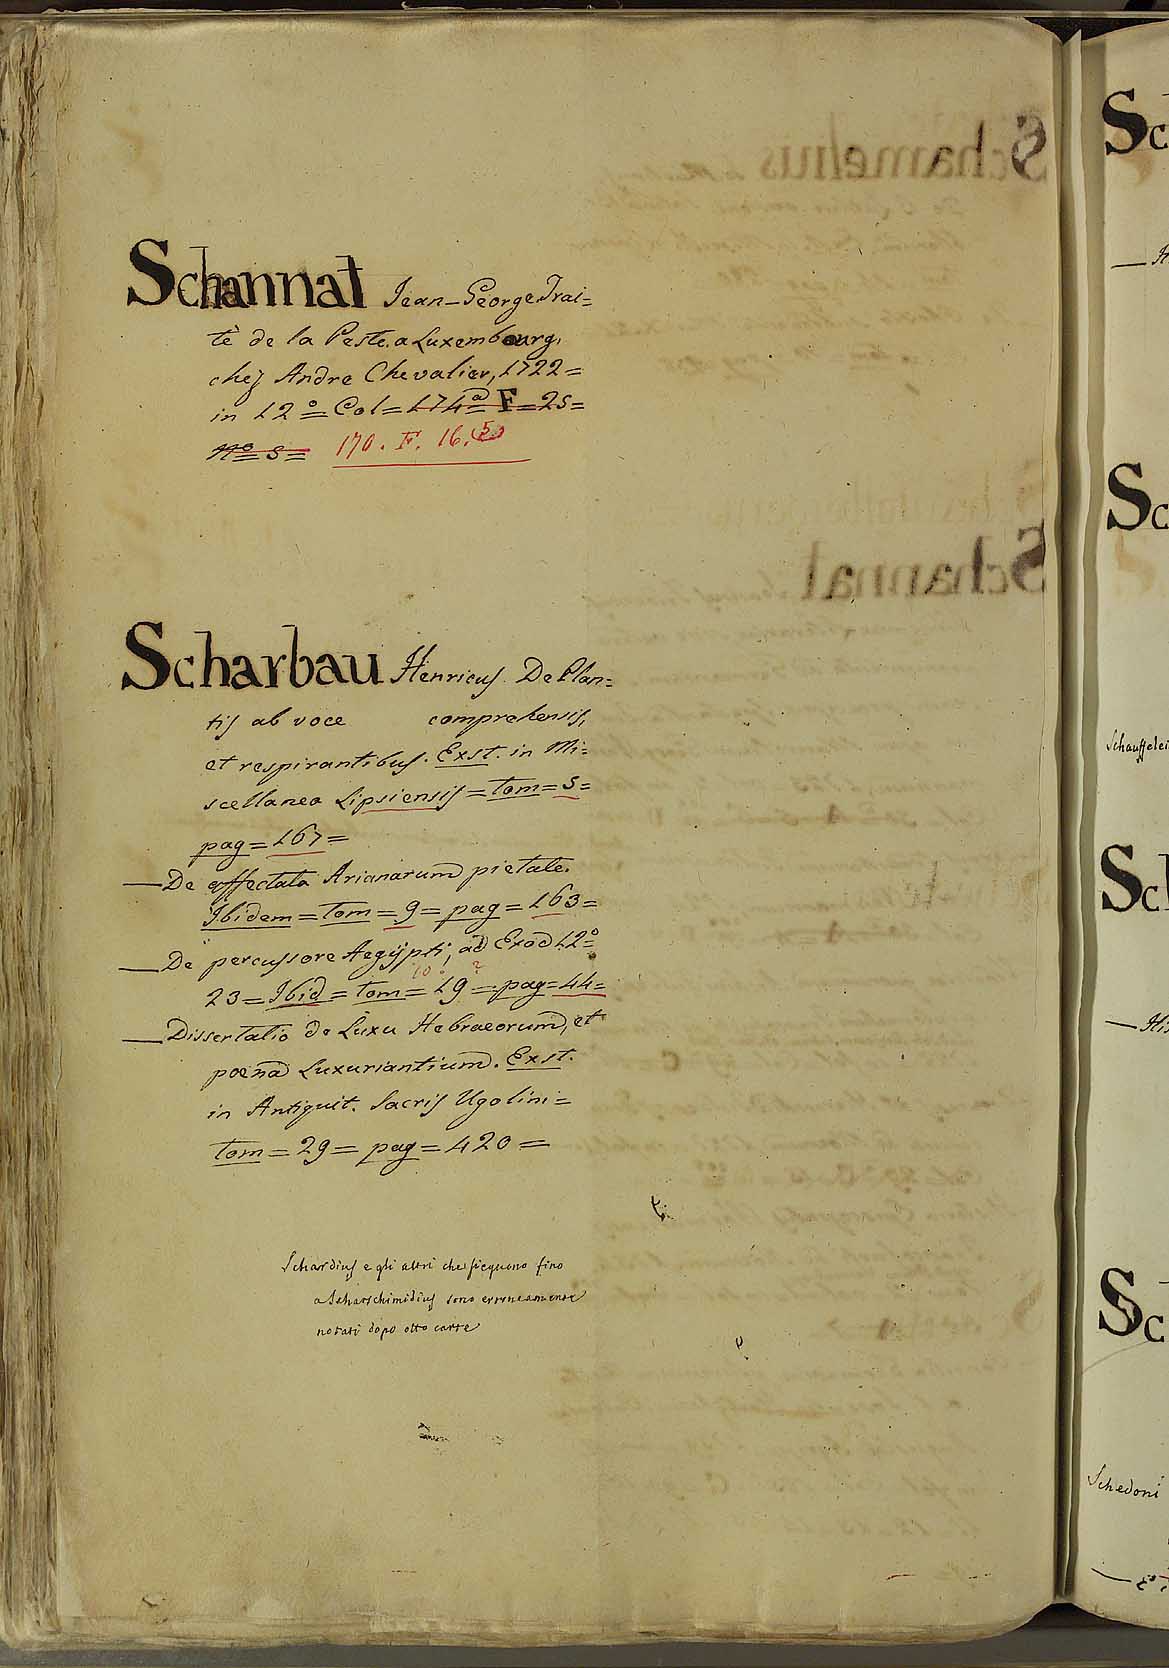 Schannat Jean-George Trai=
tè de la Peste. a Luxembourg,
chez Andre Chevalier, 1722=
in 12º = Col = 174ª = F = 25 =
Nº = 5 = 170. F. 16. (5)
Scharbau Henricus. De Plan=
tis ab voce comprehensis,
et respirantibus. Exst. in Mi=
scellanea Lipsiensis = tom = 5 =
pag = 167 =
— De affectata Arianarum pietate.
Ibidem = tom = 9 = pag = 163 =
— De percussore Aegÿpti, ad Exod 12º =
10. ?
23 = Ibid = tom = 19 = pag = 44 =
— Dissertatio de Luxu Hebraeorum, et
poena Luxuriantium. Exst.
in Antiquit. Sacris Ugolini =
tom = 29 = pag = 420 =
Schardius e gli altri che sieguono fino
a Scharschimidius sono erroneamente
notati dopo otto carte
Sc
Sc
Schauffelei
Sch
— His
Sc
Schedoni